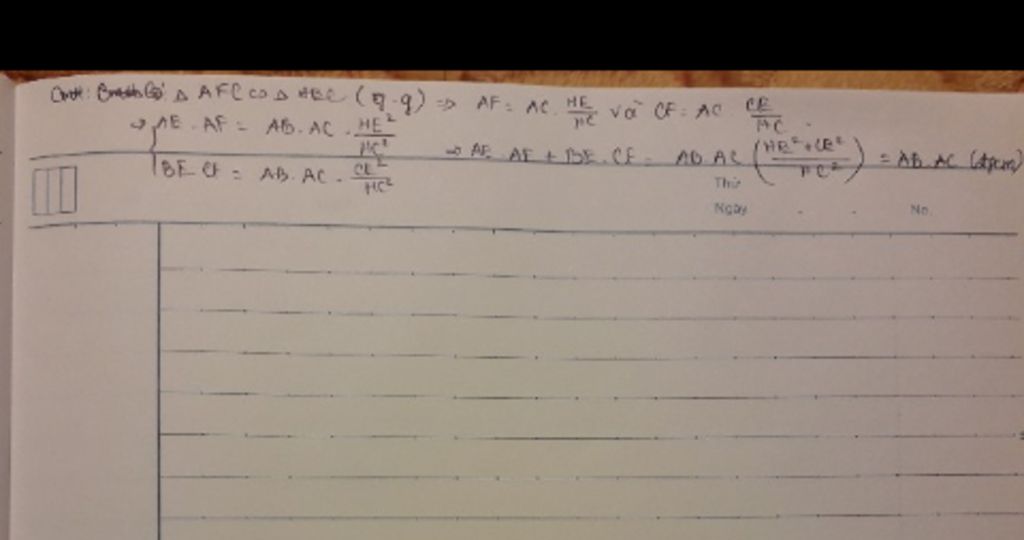 △ AFC ∽ △ HEC (g.g) ⇒ AF = AC . HE/HC và CF = AC . CE/HC .
⇒ { AE . AF = AB . AC . HE²/HC²
BE . CF = AB . AC . CE²/HC²
⇒ AE . AF + BE . CF = AB . AC (HE² + CE²/HC²) = AB . AC (đpcm)
Thứ
Ngày . . No.